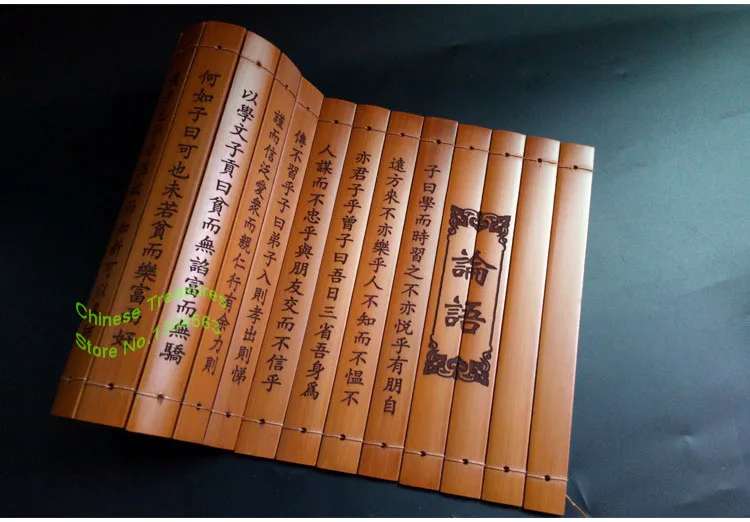 論語
子曰學而時習之不亦悅乎有朋自
遠方來不亦樂乎人不知而不慍不
亦君子乎曾子曰吾日三省吾身為
人謀而不忠乎與朋友交而不信乎
傳不習乎子曰弟子入則孝出則悌
謹而信泛愛衆而親仁行有余力則
以學文子貢曰貧而無諂富而無驕
何如子曰可也未若貧而樂富好
Chinese Treasures
Store No.